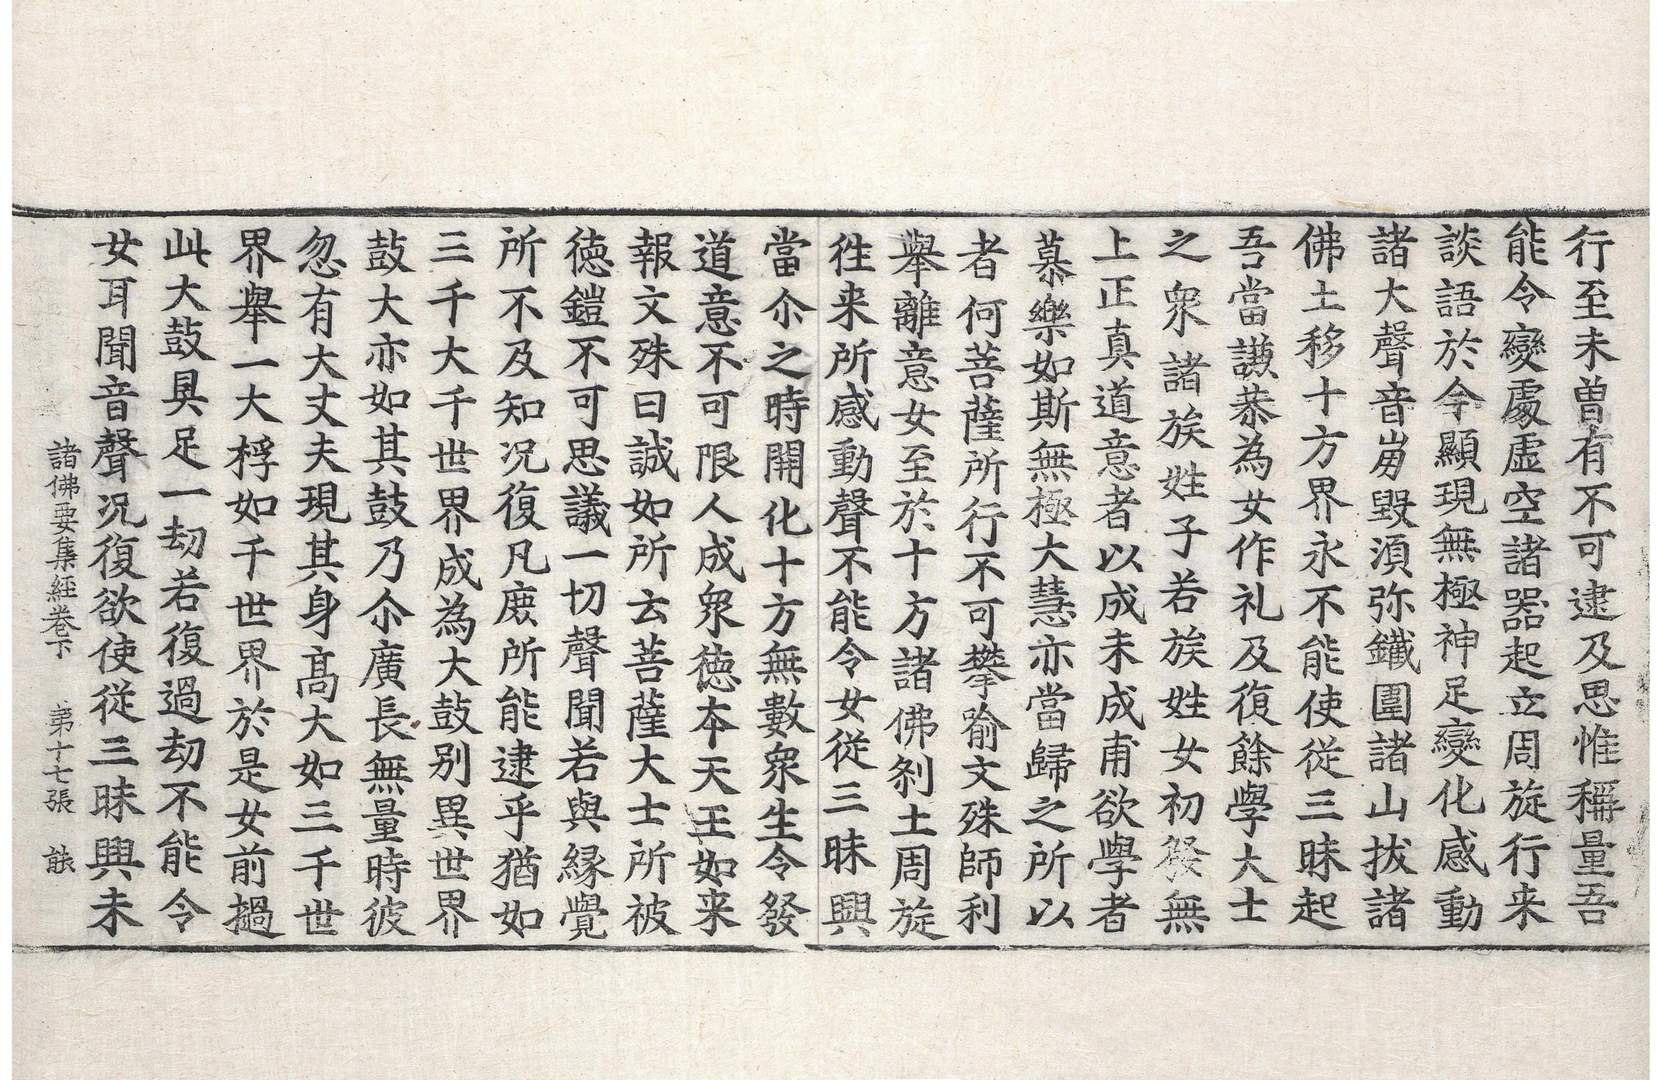 行至未曾有不可逮及思惟稱量吾
能令變處虛空諸器起立周旋行来
談語於今顯現無極神足變化感動
諸大聲音崩毀湏弥鐵圍諸山拔諸
佛土移十方界永不能使従三昧起
吾當謙恭為女作礼及復餘學大士
之衆諸族姓子若族姓女初發無
上正真道意者以成未成甫欲學者
慕樂如斯無極大慧亦當歸之所以
者何菩薩所行不可攀喻文殊師利
舉離意女至於十方諸佛剎土周旋
徃来所感動聲不能令女従三昧興
當尒之時開化十方無數衆生令發
道意不可限人成衆徳本天王如来
報文殊曰誠如所云菩薩大士所被
徳鎧不可思議一切聲聞若與緣覺
所不及知况復凡庻所能逮乎猶如
三千大千世界成為大鼓别異世界
鼓大亦如其鼓乃尒廣長無量時彼
忽有大丈夫現其身髙大如三千世
界舉一大桴如千世界於是女前撾
此大鼓具足一劫若復過劫不能令
女耳聞音聲况復欲使従三昧興未
諸佛要集經卷下　第十七張